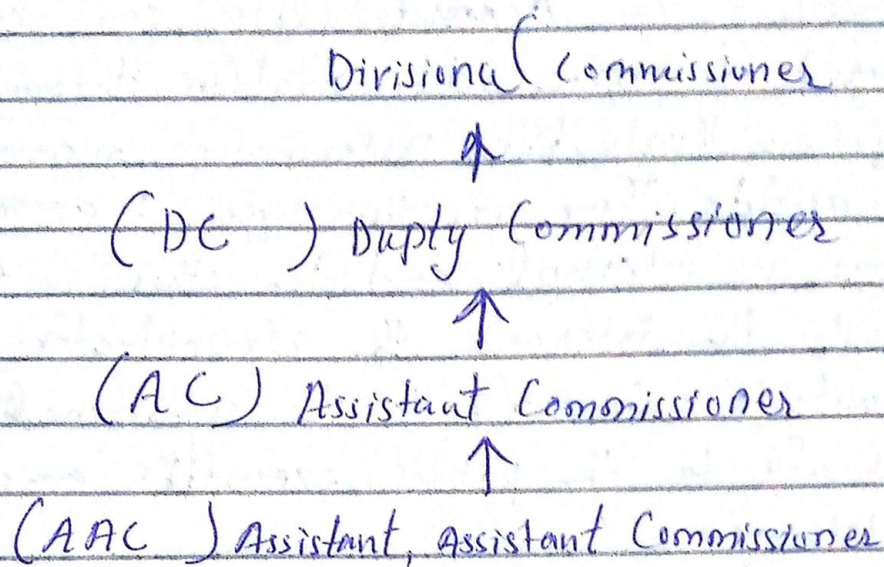 Divisional Commissioner
↑
(DC) Dupty Commissioner
↑
(AC) Assistant Commissioner
↑
(AAC) Assistant, Assistant Commissioner